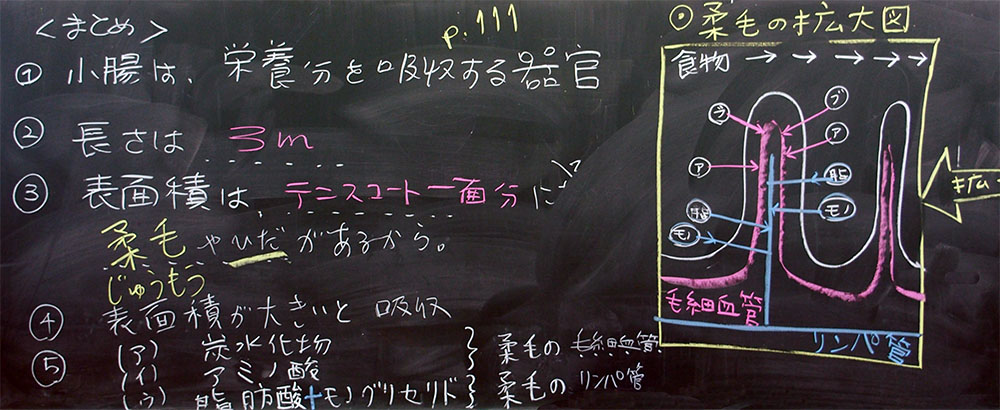 <まとめ>
p.111
① 小腸は、栄養分を吸収する器官
② 長さは 3m
③ 表面積は、テニスコート一面分
柔毛やひだがあるから。
じゅうもう
④ 表面積が大きいと 吸収
⑤ (ア) 炭水化物 } 柔毛の 毛細血管
(イ) アミノ酸
(ウ) 脂肪酸+モノグリセリド } 柔毛の リンパ管
◎柔毛の拡大図
食物 → → → → →
ブ ブ
ア ア
脂 モノ
脂 モノ
毛細血管
リンパ管
拡